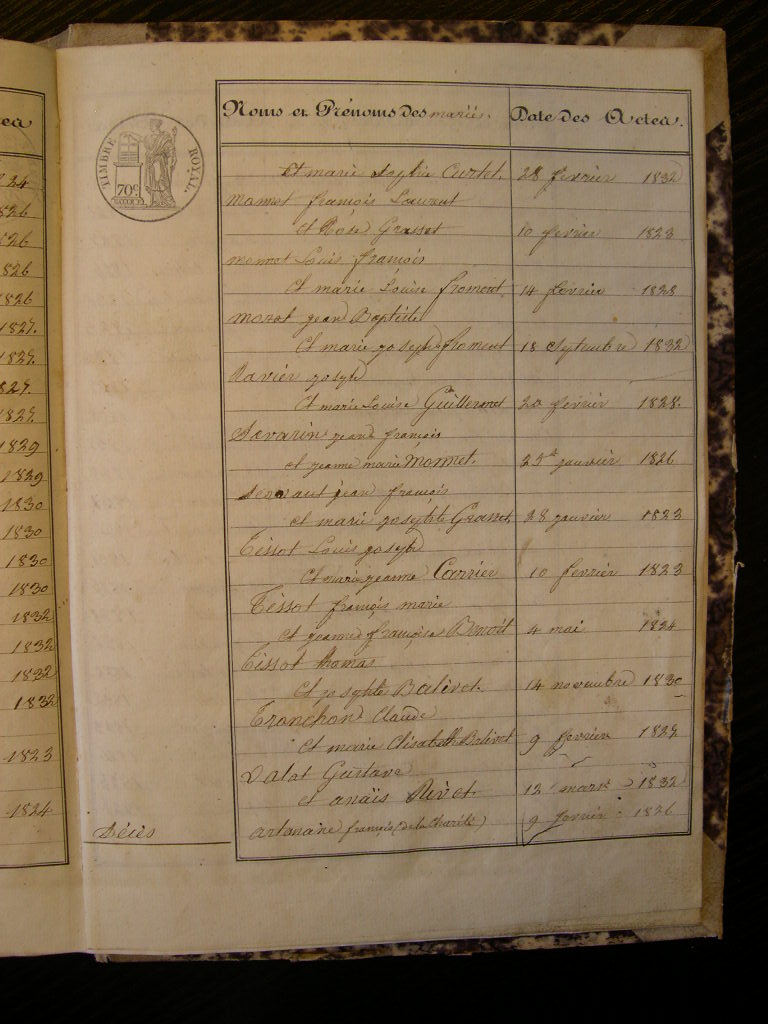 TIMBRE ROYAL.
70c
Noms et Prénoms des mariés. Date des Actes.
et marie Sophie Curtet. 28 fevrier 1832
monnet françois Laurent
et Rose Grasset 10 fevrier 1823
monnet Louis françois
et marie Louise froment. 14 fevrier 1828
morat jean Baptiste
et marie joseph froment 18 septembre 1832
Ravier joseph
et marie Louise Guillermet 20 fevrier 1828.
Savarin jean françois
et jeanne marie Monnet. 25 janvier 1826
jean françois
et marie josephte Granet 28 janvier 1823
Tissot Louis joseph
et marie jeanne Carrier 10 fevrier 1823
Tissot françois marie
et jeanne françoise Benoit 4 mai 1824
Tissot thomas
et josephte Balivet. 14 novembre 1830
Tronchon Claude
et marie Elisabeth Balivet 9 fevrier 1829.
Valat Gustave
et anaïs Rivet. 12 mars 1832
Décès
artanaire françois (de la Charité) 9 fevrier 1826
1826
1826
1827.
1829
1829
1830
1830
1830
1830
1832
1832
1832
1832
1823
1824